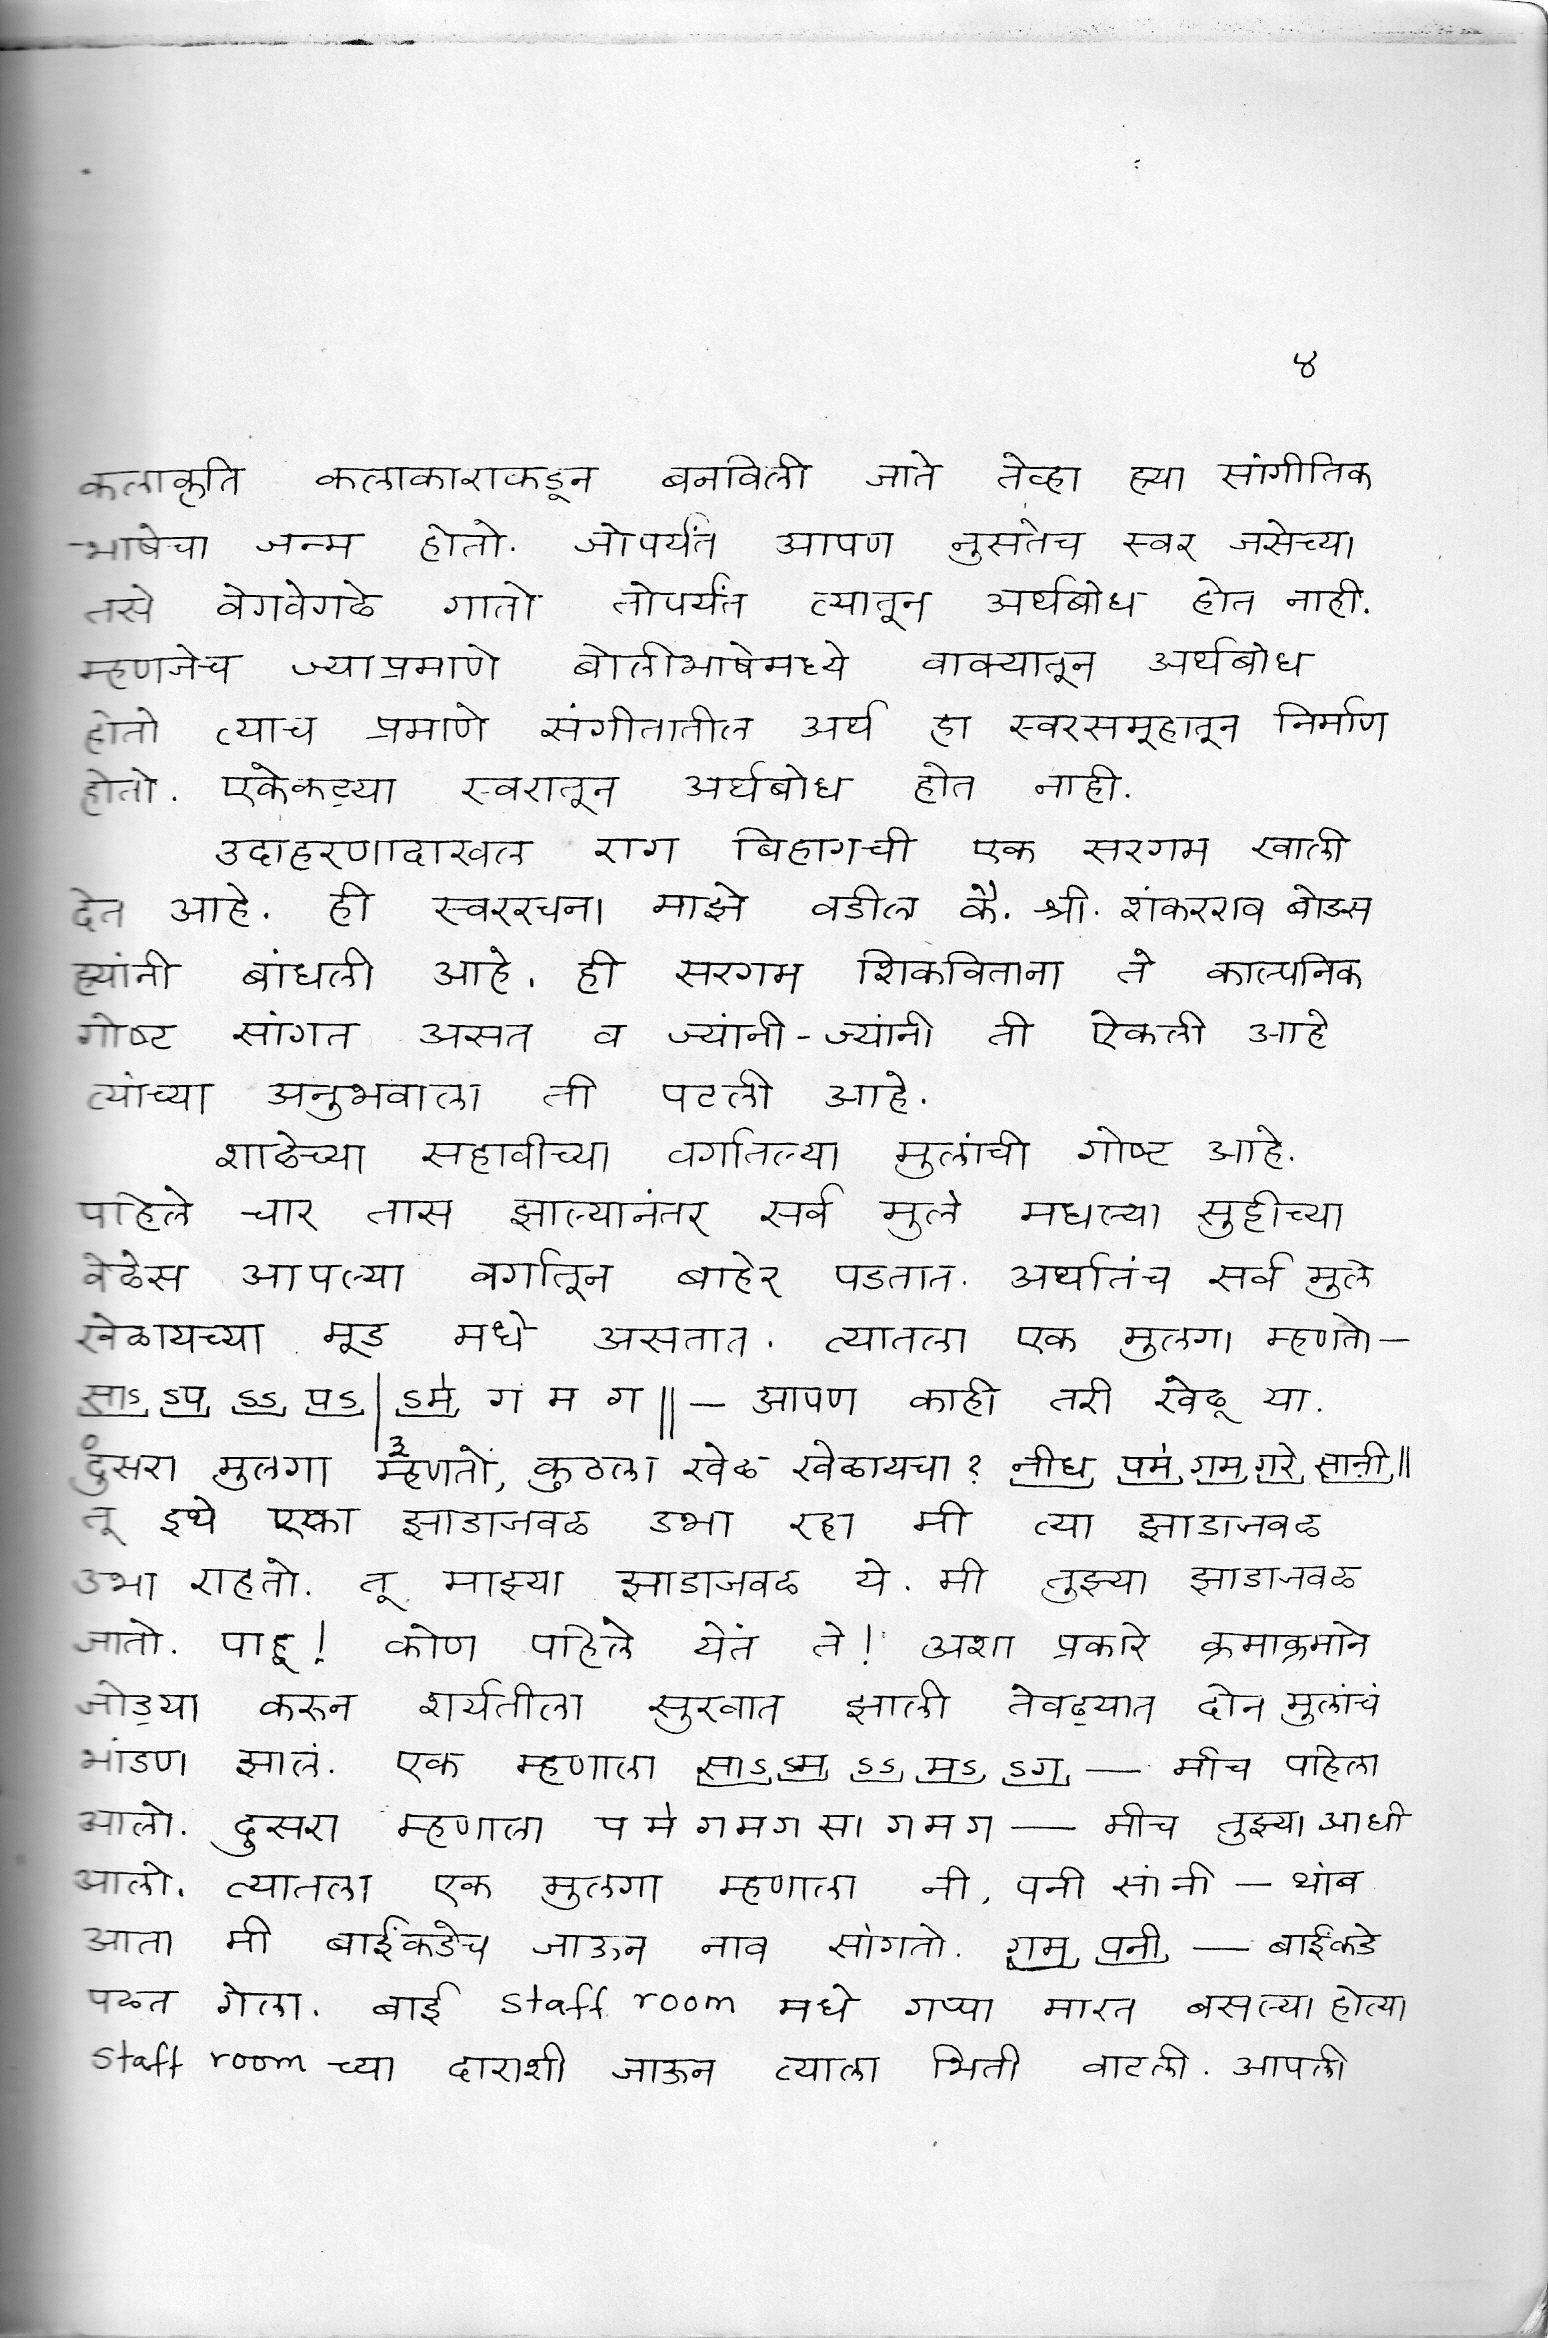 ४
कलाकृति कलाकाराकडून बनविली जाते तेव्हा ह्या सांगीतिक
भाषेचा जन्म होतो. जोपर्यंत आपण नुसतेच स्वर जसेच्या
तसे वेगवेगळे गातो तोपर्यंत त्यातून अर्थबोध होत नाही.
म्हणजेच ज्याप्रमाणे बोलीभाषेमध्ये वाक्यातून अर्थबोध
होतो त्याच प्रमाणे संगीतातील अर्थ हा स्वरसमूहातून निर्माण
होतो. एकेकट्या स्वरातून अर्थबोध होत नाही.
उदाहरणादाखल राग बिहागची एक सरगम खाली
देत आहे. ही स्वररचना माझे वडील कै. श्री. शंकरराव बोडस
ह्यांनी बांधली आहे. ही सरगम शिकविताना ते काल्पनिक
गोष्ट सांगत असत व ज्यांनी-ज्यांनी ती ऐकली आहे
त्यांच्या अनुभवाला ती पटली आहे.
शाळेच्या सहावीच्या वर्गातल्या मुलांची गोष्ट आहे.
पहिले चार तास झाल्यानंतर सर्व मुले मधल्या सुट्टीच्या
वेळेस आपल्या वर्गातून बाहेर पडतात. अर्थातंच सर्व मुले
खेळायच्या मूड मधे असतात. त्यातला एक मुलगा म्हणतो—
साऽ ऽप ऽऽ पऽ | ऽमे ग म ग || — आपण काही तरी खेळू या.
दुसरा मुलगा म्हणतो, कुठला खेळ खेळायचा? नीध पमे गम गरे सानी ||
तू इथे एका झाडाजवळ उभा रहा मी त्या झाडाजवळ
उभा राहतो. तू माझ्या झाडाजवळ ये. मी तुझ्या झाडाजवळ
जातो. पाहू! कोण पहिले येतं ते! अशा प्रकारे क्रमाक्रमाने
जोड्या करून शर्यतीला सुरवात झाली तेवढ्यात दोन मुलांचं
भांडण झालं. एक म्हणाला साऽ ऽम ऽऽ मऽ ऽग — मीच पहिला
आलो. दुसरा म्हणाला प मे ग म ग सा ग म ग — मीच तुझ्या आधी
आलो. त्यातला एक मुलगा म्हणाला नी, पनी सांनी — थांब
आता मी बाईंकडेच जाऊन नाव सांगतो. गम पनी — बाईंकडे
पळत गेला. बाई staff room मधे गप्पा मारत बसल्या होत्या
staff room च्या दाराशी जाऊन त्याला भिती वाटली. आपली